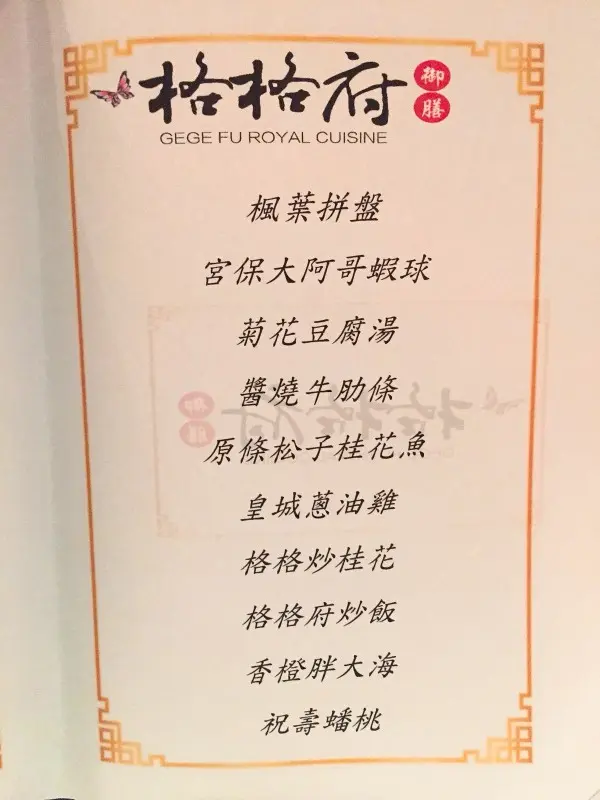 格格府 御膳
GEGE FU ROYAL CUISINE
楓葉拼盤
宮保大阿哥蝦球
菊花豆腐湯
醬燒牛肋條
原條松子桂花魚
皇城蔥油雞
格格炒桂花
格格府炒飯
香橙胖大海
祝壽蟠桃